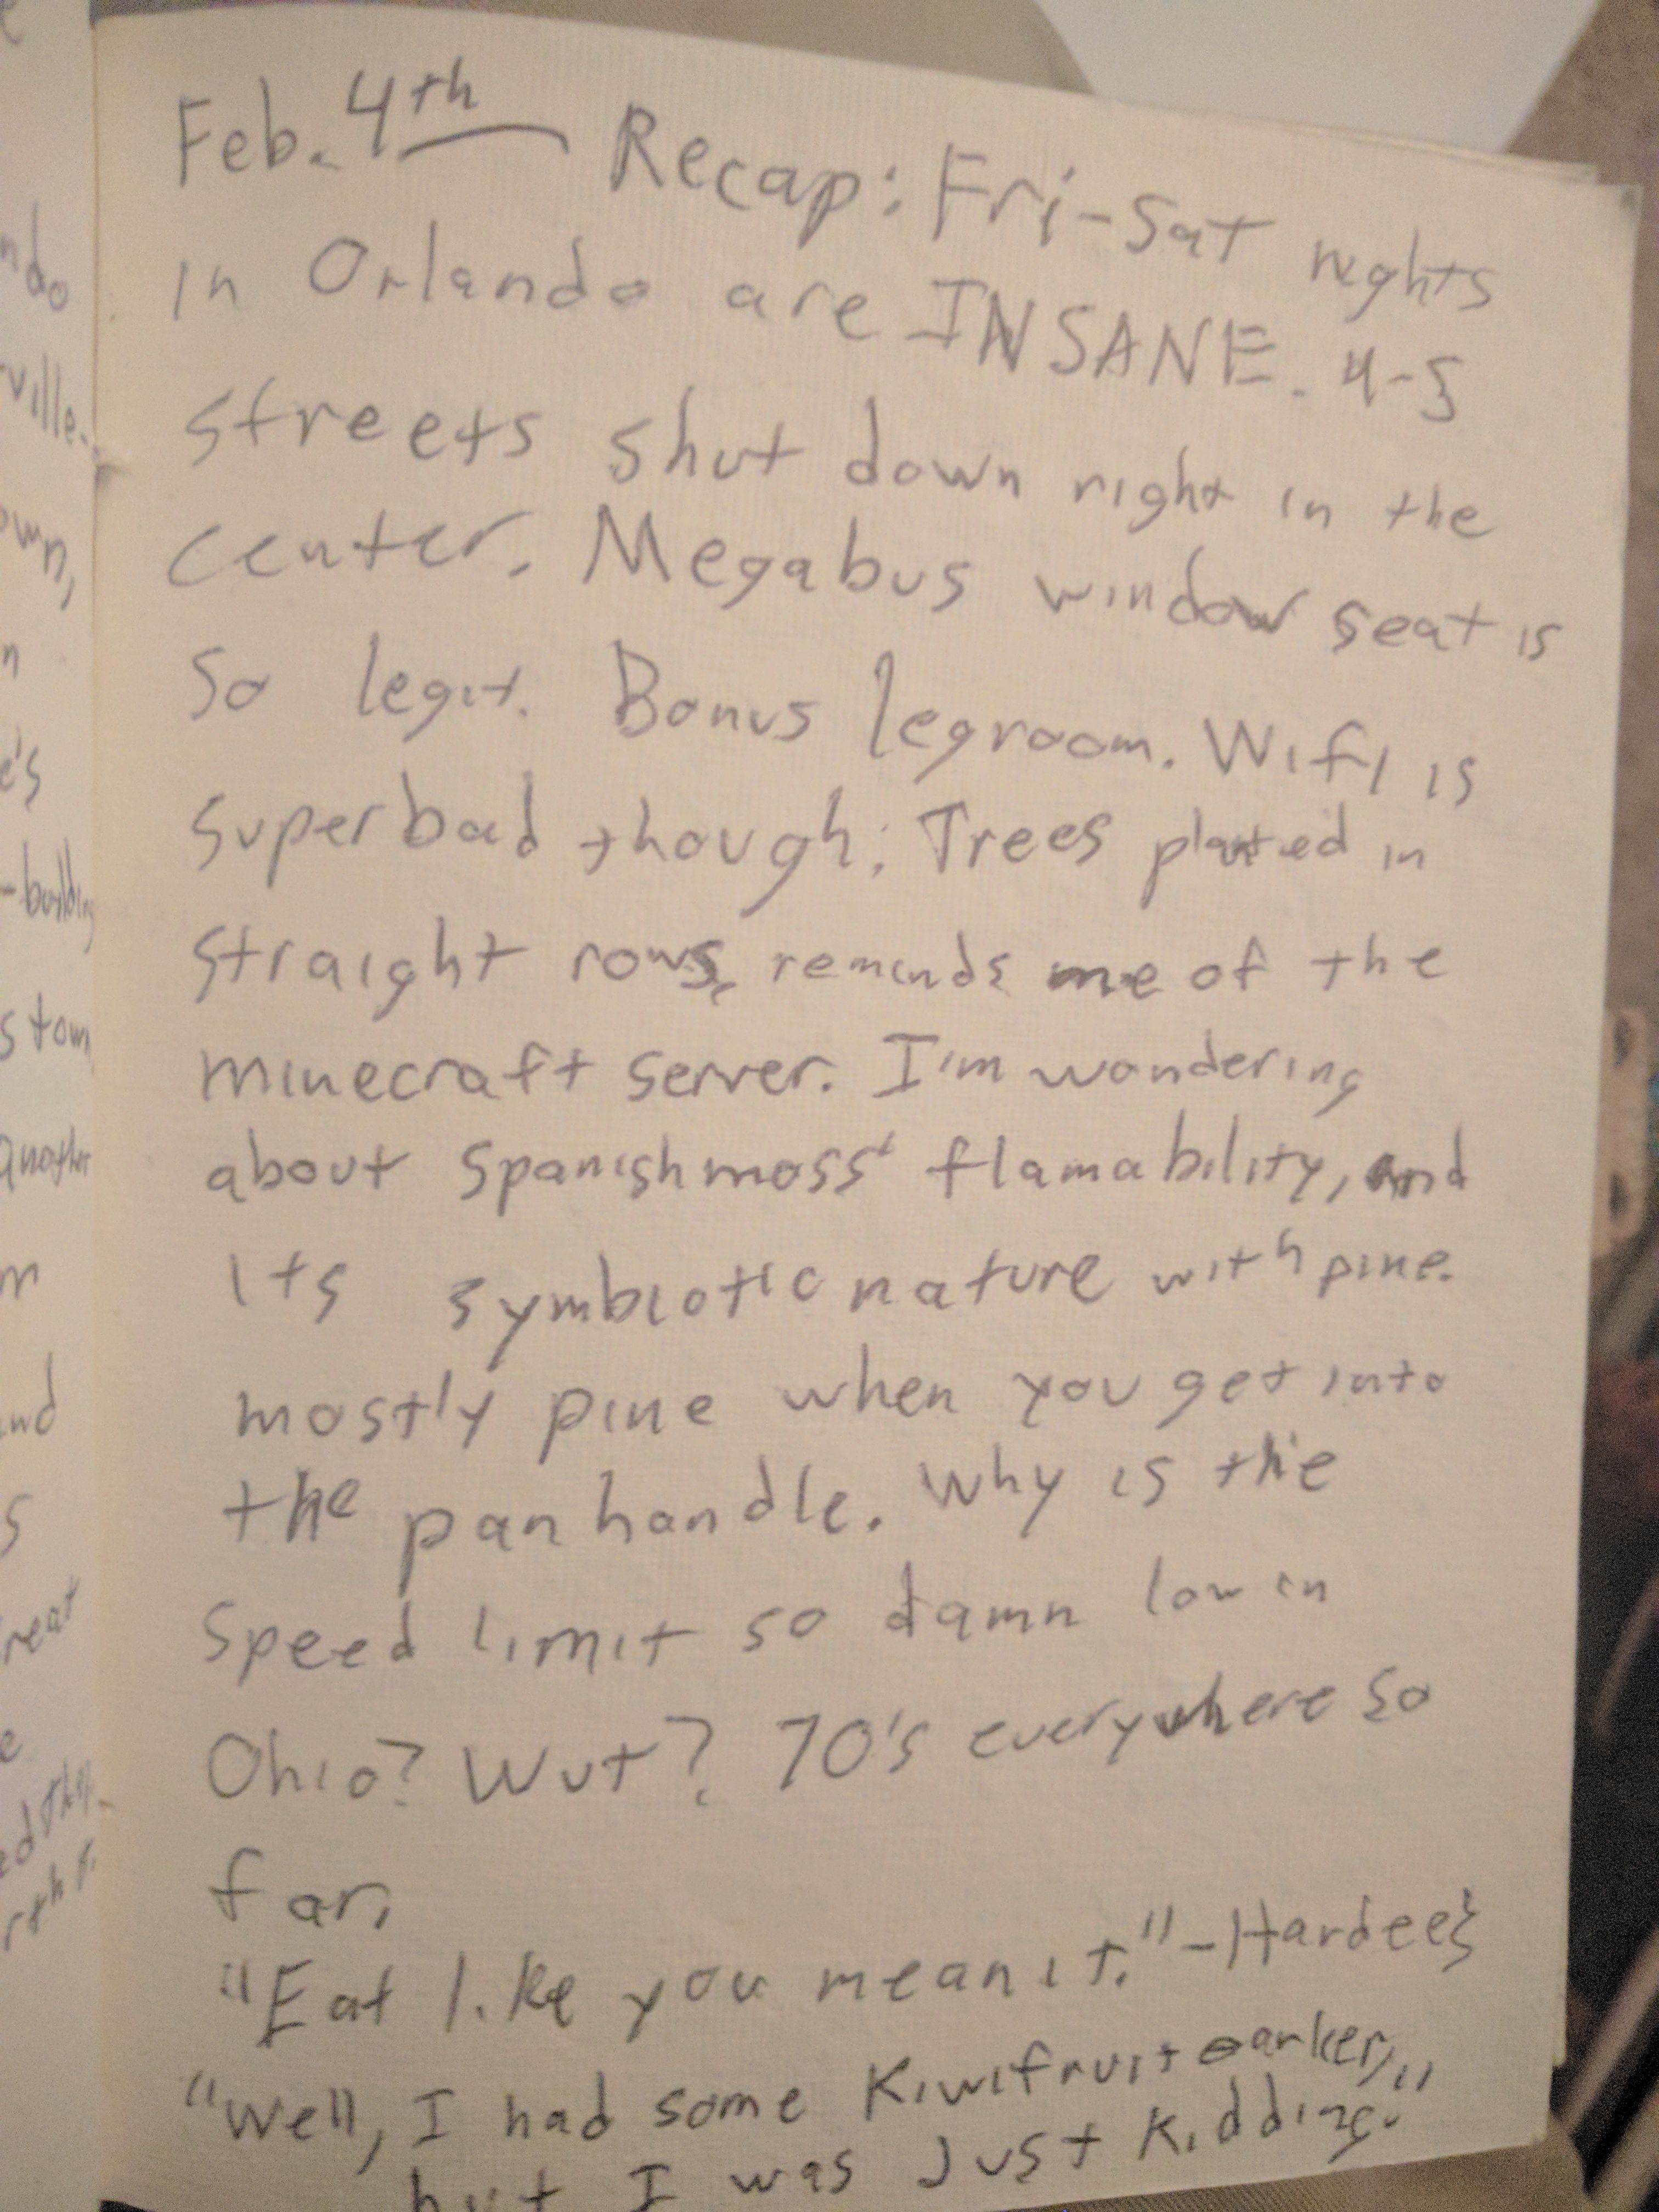 Feb. 4th Recap: Fri-Sat nights
in Orlando are INSANE. 4-5
streets shut down right in the
center. Megabus window seat is
so legit. Bonus legroom. Wifi is
superbad though; Trees planted in
straight rows, reminds me of the
minecraft server. I'm wondering
about spanishmoss' flamability, and
its symbiotic nature with pine.
mostly pine when you get into
the panhandle. Why is the
speed limit so damn low in
Ohio? Wut? 70's everywhere so
far.
"Eat like you mean it." - Hardee's
"Well, I had some kiwifruit earlier,
but I was just kidding."
ndo
ville.
own,
n
e's
-building
s town
another
m
nd
s
reat
e